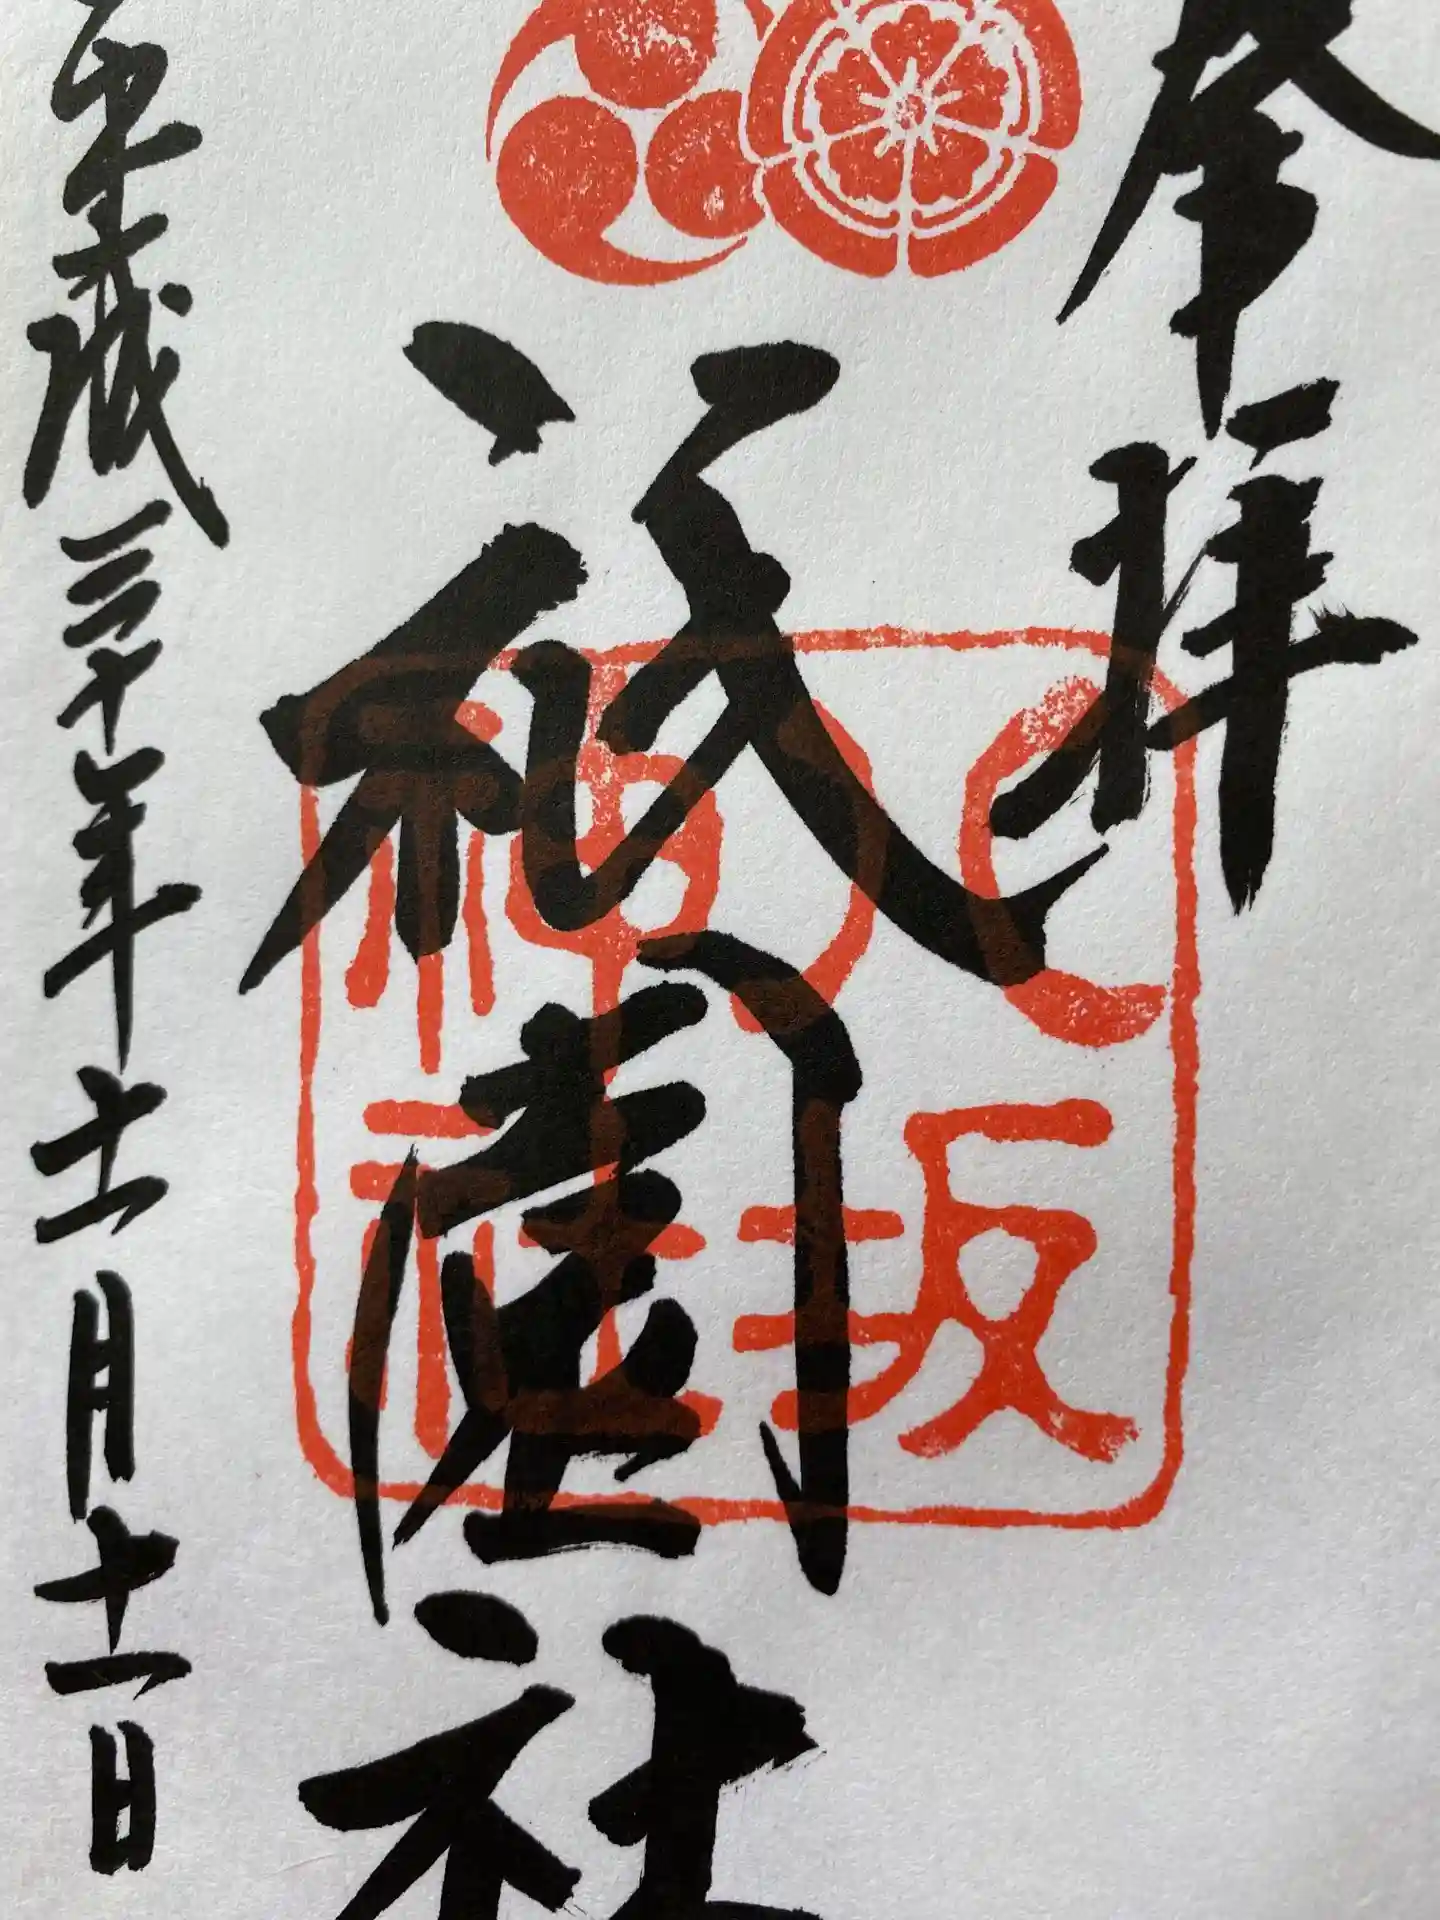 奉拝
祇園社
八坂
神社
平成三十年十一月十一日